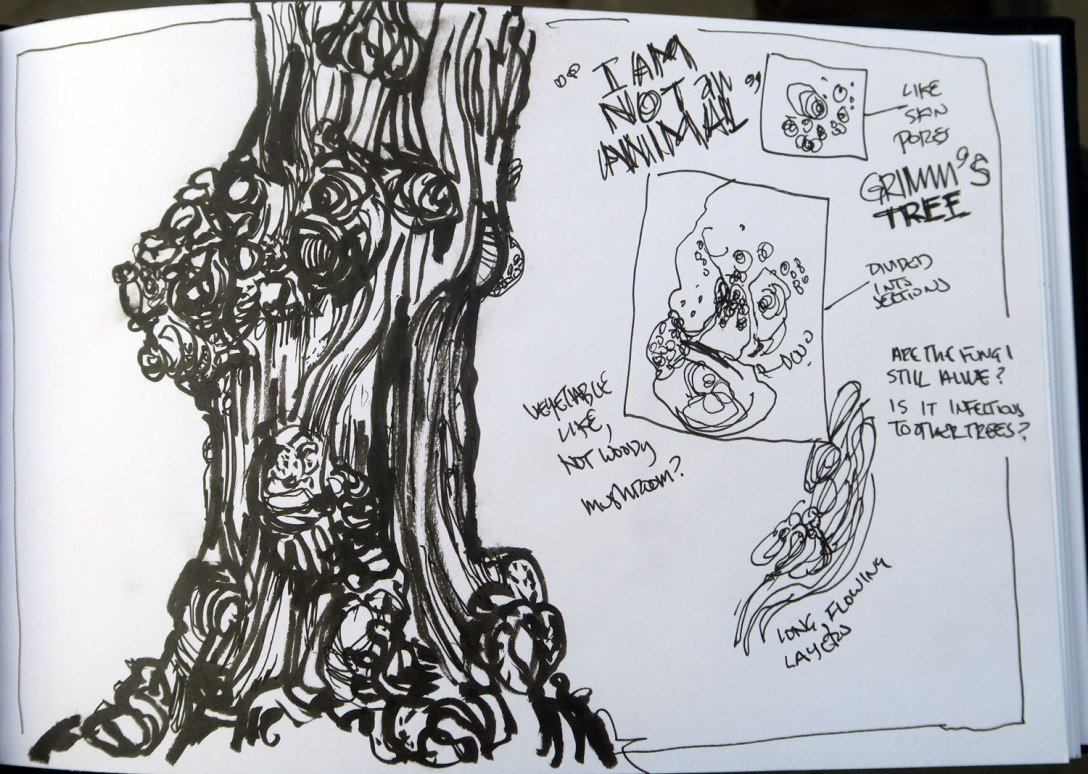 "I AM
NOT AN
ANIMAL"
LIKE
SKIN
PORES
GRIMM'S
TREE
DIVIDED
INTO
SECTIONS
ARE THE FUNGI
STILL ALIVE?
IS IT INFECTIOUS
TO OTHER TREES?
VEGETABLE
LIKE,
NOT WOODY
MUSHROOM?
LONG, FLOWING
LAYERS